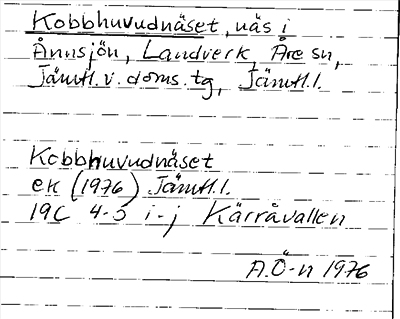 Kobbhuvudnäset, näs i
Ånnsjön, Landverk, Åre sn,
Jämtl. v. doms. tg, Jämtl. l.
Kobbhuvudnäset
ek (1976) Jämtl. l.
19C 4-5 i-j Kärråvallen
A.Ö-n 1976